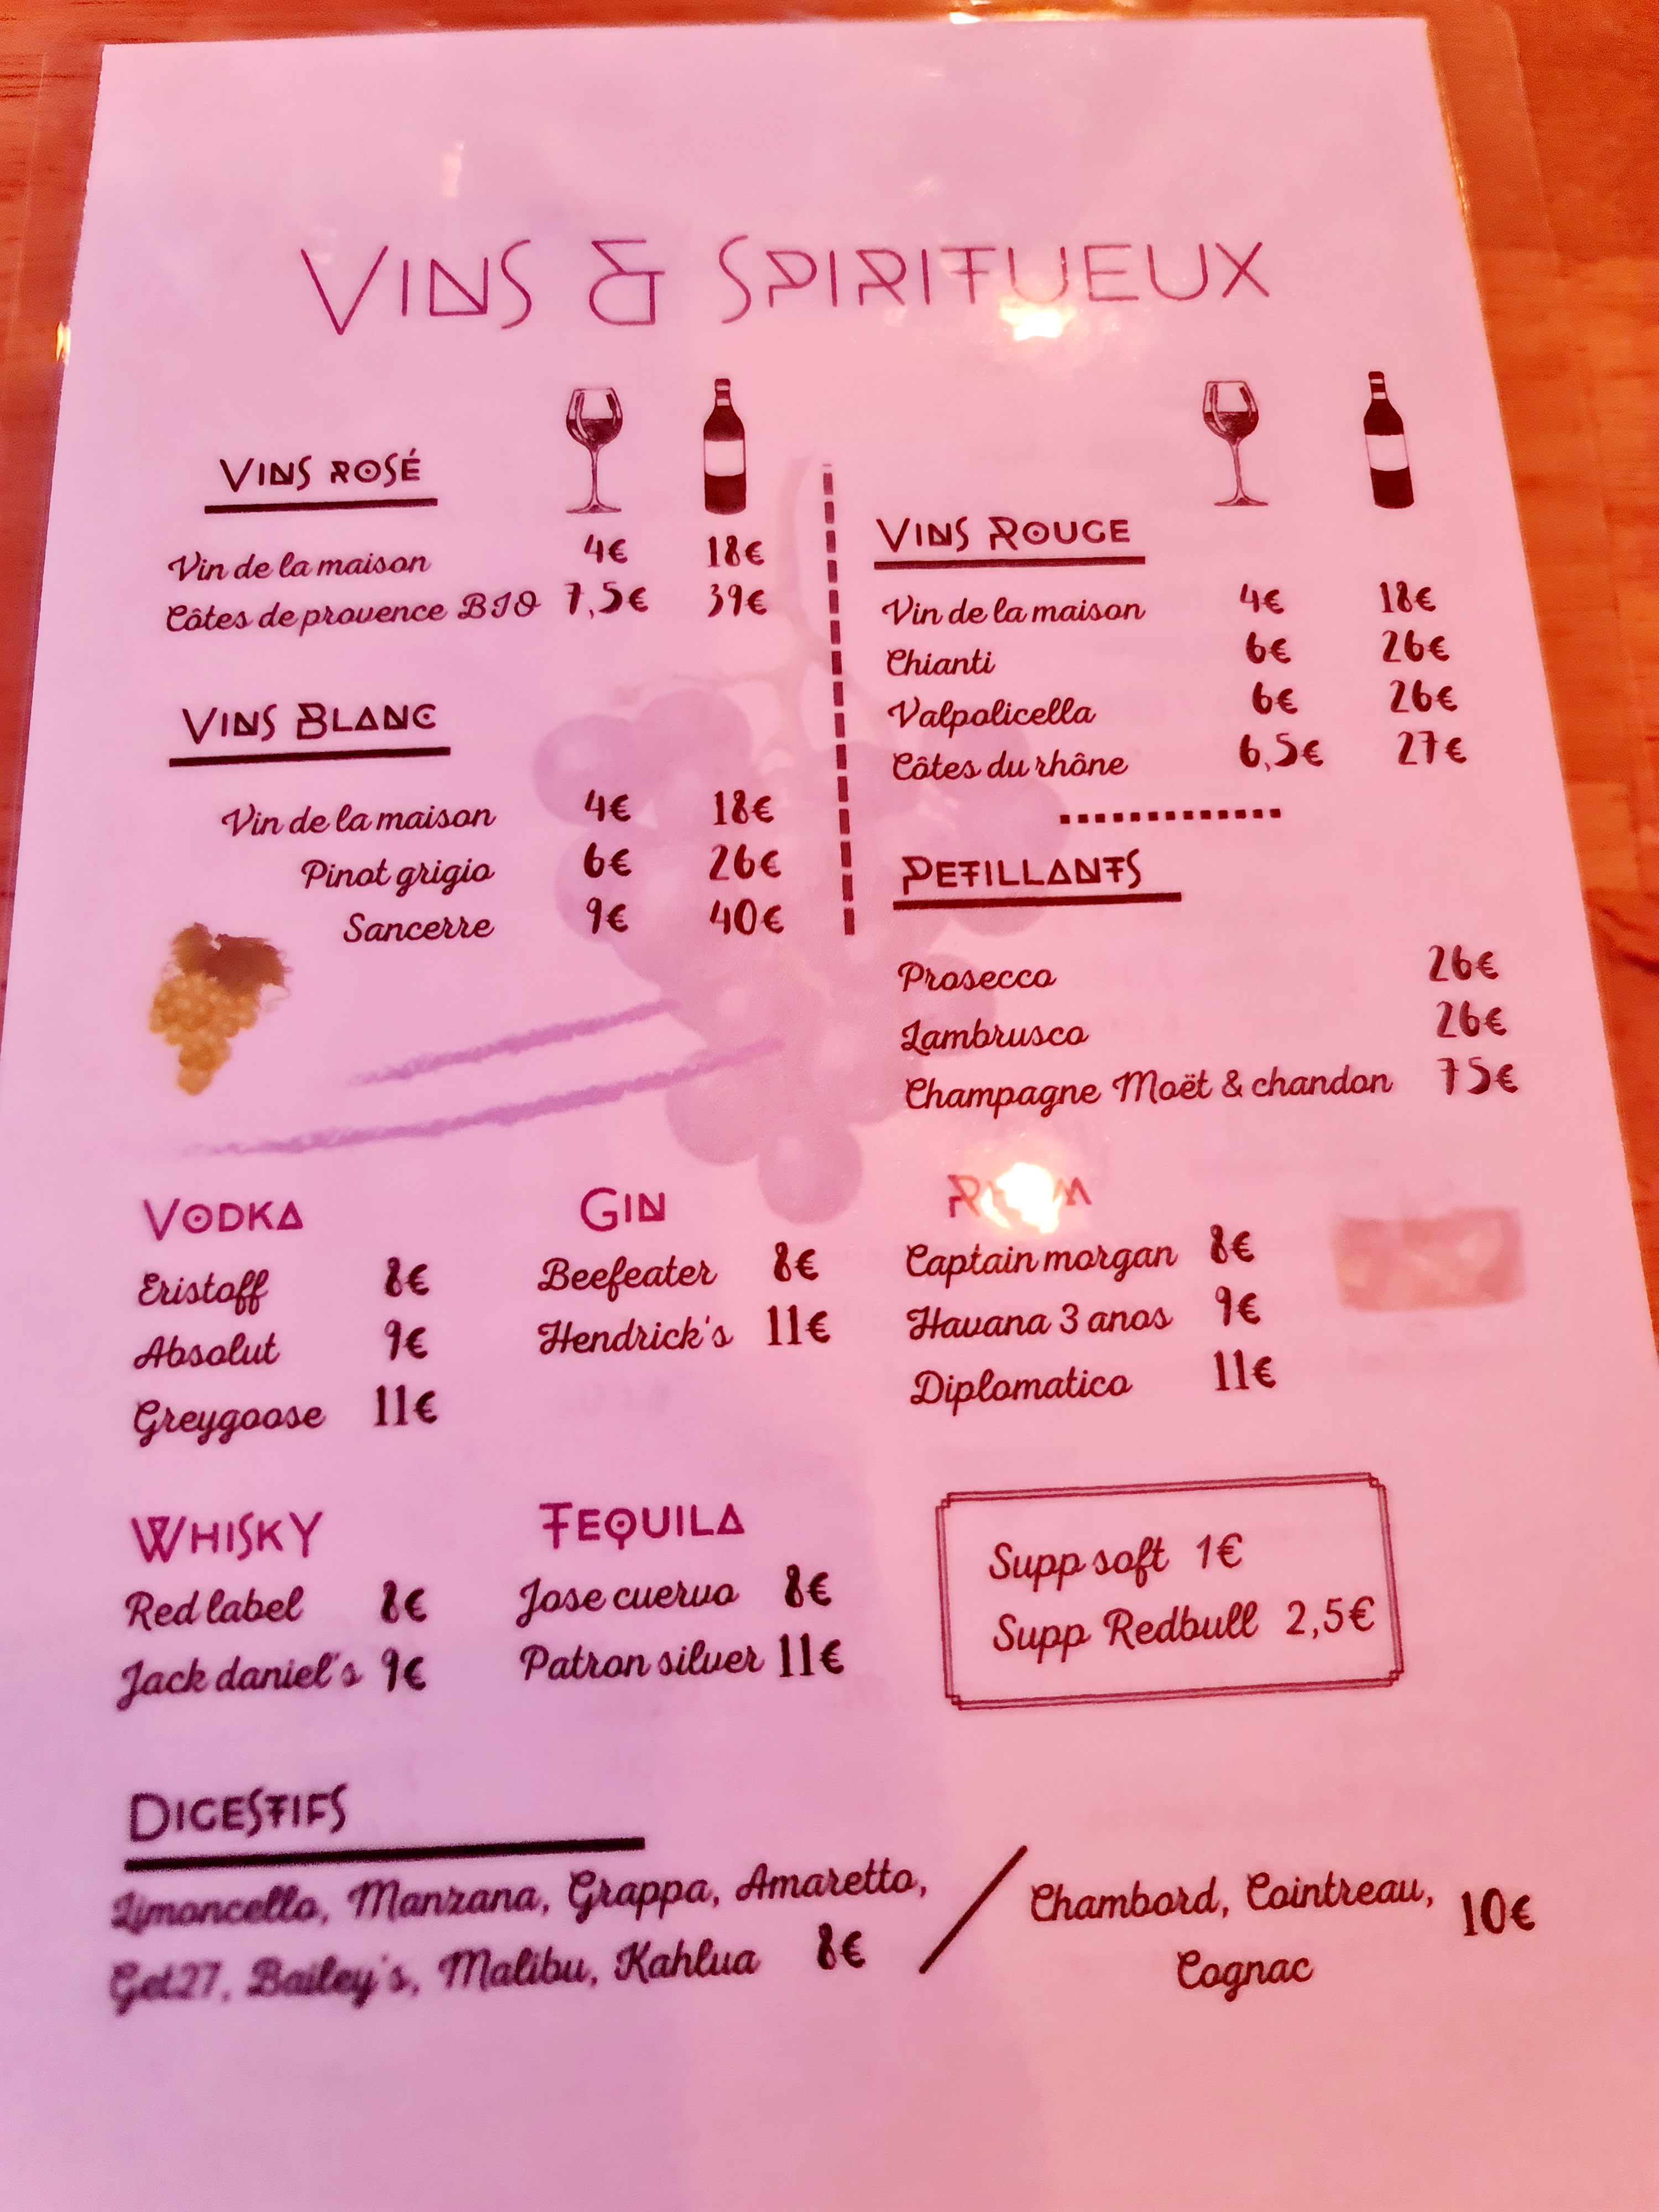 Vins & Spiritueux
Vins rosé
Vin de la maison 4€ 18€
Côtes de provence BIO 7,5€ 39€
Vins Blanc
Vin de la maison 4€ 18€
Pinot grigio 6€ 26€
Sancerre 9€ 40€
Vins Rouge
Vin de la maison 4€ 18€
Chianti 6€ 26€
Valpolicella 6€ 26€
Côtes du rhône 6,5€ 27€
Petillants
Prosecco 26€
Lambrusco 26€
Champagne Moët & chandon 75€
Vodka
Eristoff 8€
Absolut 9€
Greygoose 11€
Gin
Beefeater 8€
Hendrick's 11€
Captain morgan 8€
Havana 3 anos 9€
Diplomatico 11€
Whisky
Red label 8€
Jack daniel's 9€
Tequila
Jose cuervo 8€
Patron silver 11€
Supp soft 1€
Supp Redbull 2,5€
Digestifs
Limoncello, Manzana, Grappa, Amaretto,
Get27, Bailey's, Malibu, Kahlua 8€
/
Chambord, Cointreau, 10€
Cognac